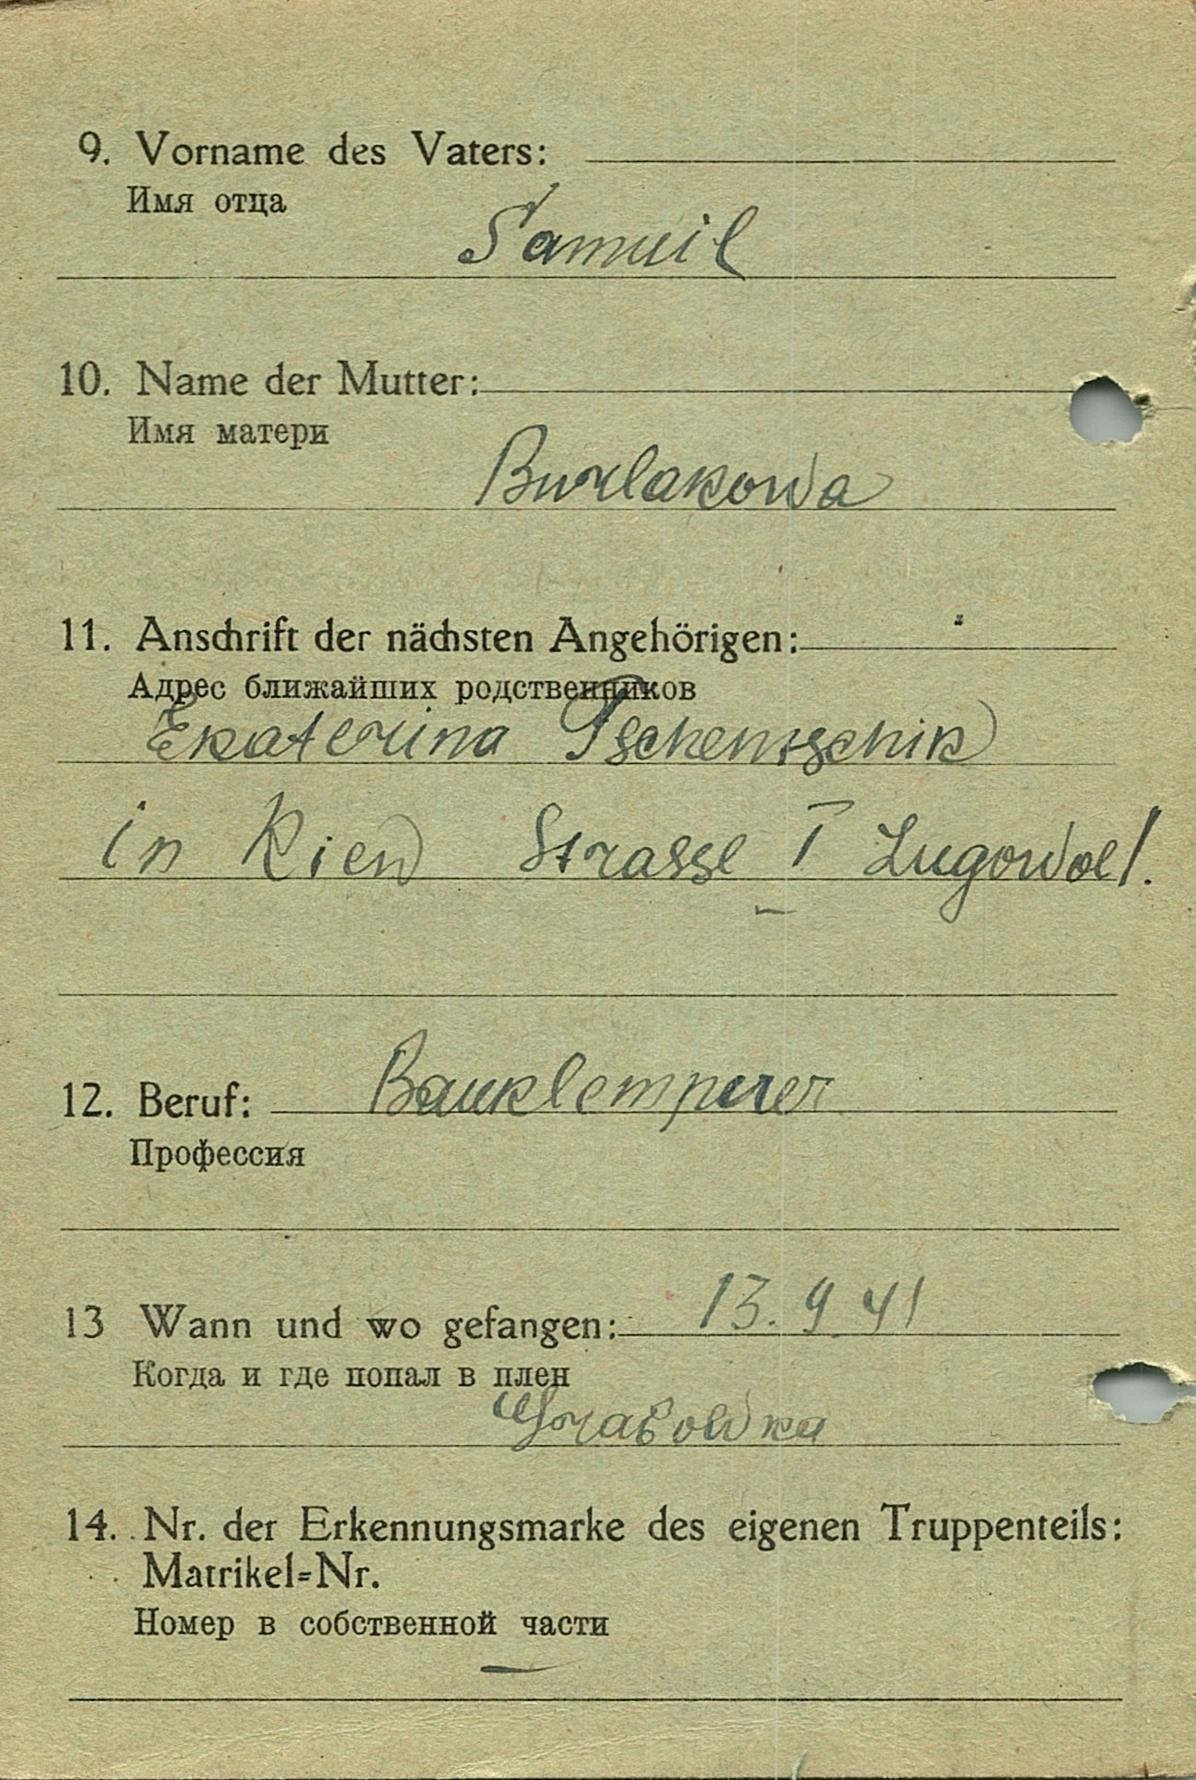 9. Vorname des Vaters:
Имя отца
Samuil
10. Name der Mutter:
Имя матери
Burlakowa
11. Anschrift der nächsten Angehörigen:
Адрес ближайших родственников
Ekaterina
in Kiew Strasse I
12. Beruf: Bauklemperer
Профессия
13 Wann und wo gefangen: 13.9.41
Когда и где попал в плен
14. Nr. der Erkennungsmarke des eigenen Truppenteils:
Matrikel=Nr.
Номер в собственной части
—